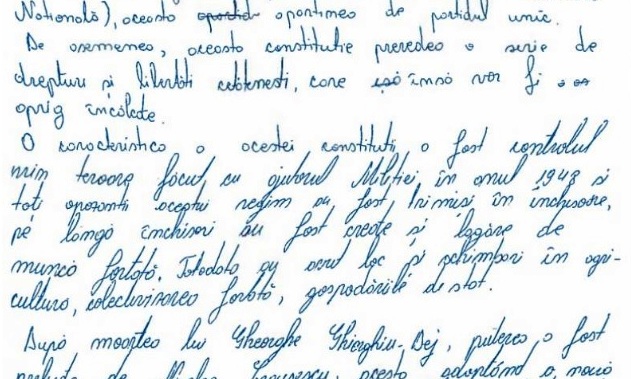 Națională), aceasta apartinea de partidul unic.
De asemenea, aceasta constitutie prevedea o serie de
drepturi și libertăti cetătenesti, care însă vor fi
aprig încălcate.
O caracteristica a acestei constituti a fost controlul
prin teroare făcut cu ajutorul Militiei în anul 1948 si
toti oponantii acestui regim au fost trimisi în închisoare,
pe lângă închisori au fost create și lagăre de
muncă fortată. Totodata au avut loc și schimbari în agri-
cultura, colectivizarea fortată, gospodăriile de stat.
După moartea lui Gheorghe Ghiorghiu-Dej, puterea a fost
preluata de Nicolae Ceausescu, acesta adoptând o nouă